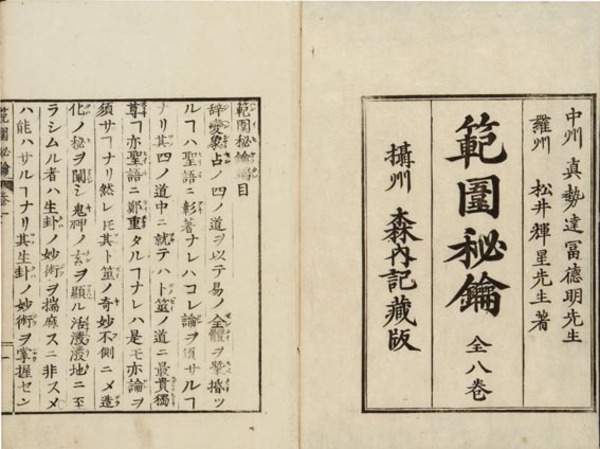 中州 真勢達冨德明先生
羅州 松井輝星先生著
範圍秘鑰 全八巻
攝州 森内記藏版
範圍秘鑰端目
辞変象占ノ四ノ道ヲ以テ易ノ全體ヲ擧撘ッ
ルヿハ聖語ニ彰著ナレハコレ論ヲ須サルヿ
ナリ其四ノ道中ニ就テハト筮ノ道ニ最貴獨
尊ヿ亦聖語ニ鄭重タルヿナレハ是モ亦論ヲ
須サヿナリ然レ𪜈其ト筮ノ奇妙不側ニメ造
化ノ秘ヲ闡シ鬼神ノ玄ヲ顕ル活潑潑地ニ至
ラシムル者ハ生卦ノ妙術ヲ揣麻スニ非スメ
ハ能ハサルヿナリ其生卦ノ妙術ヲ掌握セン
範圍秘鑰 巻一